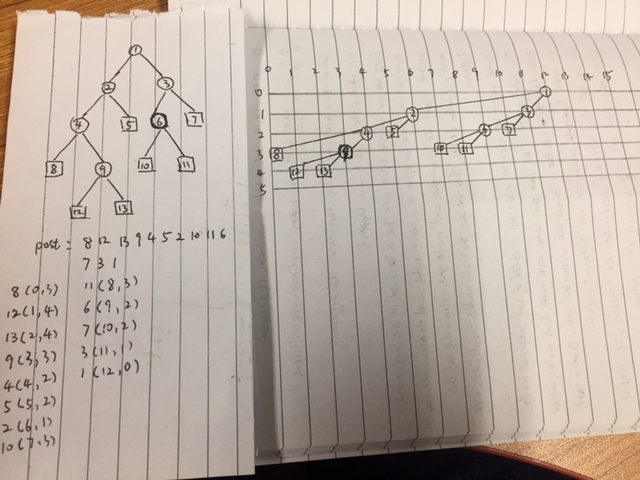 1
2 3
4 5 6 7
8 9 10 11
12 13
post = 8 12 13 9 4 5 2 10 11 6
7 3 1
8(0,3)
12(1,4)
13(2,4)
9(3,3)
4(4,2)
5(5,2)
2(6,1)
10(7,3)
11(8,3)
6(9,2)
7(10,2)
3(11,1)
1(12,0)
0 1 2 3 4 5 6 7 8 9 10 11 12 13 14 15
0 1
1 2 3
2 4 5 6 7
3 8 9 10 11
4 12 13
5